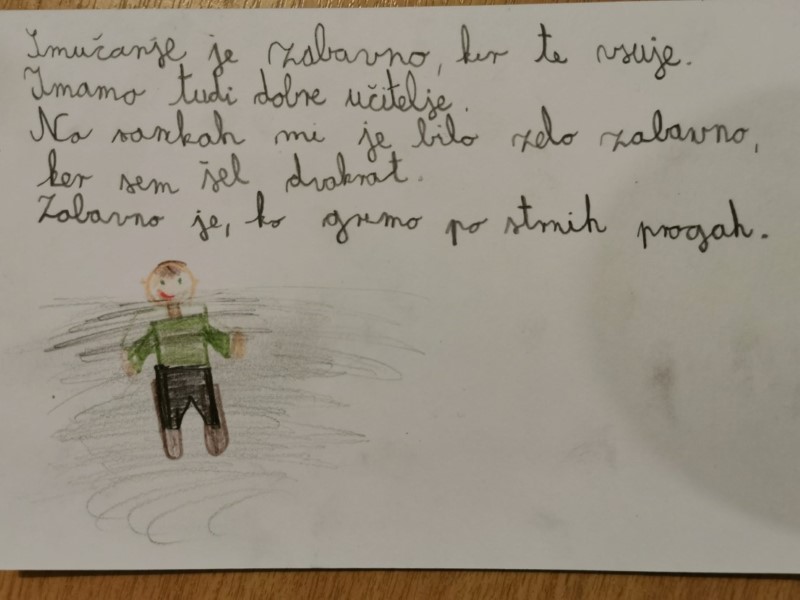 Smučanje je zabavno, ker te vsuje.
Imamo tudi dobre učitelje.
Na sankah mi je bilo zelo zabavno,
ker sem šel dvakrat.
Zabavno je, ko gremo po strmih progah.